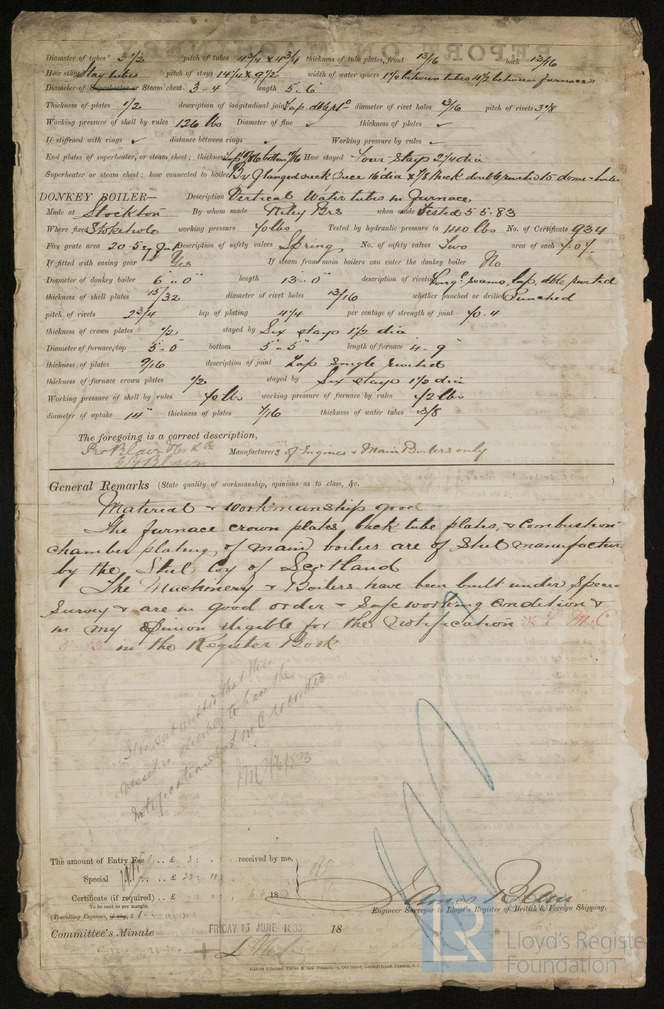 Diameter of tubes 3 1/2 pitch of tubes 4 3/4 x 4 3/4 thickness of tube plates, front 13/16 back 13/16
How stayed Stay tubes pitch of stays 14 1/4 x 9 1/2 width of water spaces 1 1/4 between tubes between furnaces
Diameter of Superheater or Steam chest 3-4 length 5-6
Thickness of plates 1/2 description of longitudinal joint Lap dble diameter of rivet holes 13/16 pitch of rivets 3 1/8
Working pressure of shell by rules 126 lbs Diameter of flue ✓ thickness of plates ✓
If stiffened with rings ✓ distance between rings ✓ Working pressure by rules ✓
End plates of superheater, or steam chest; thickness How stayed Four stays 2 1/4 dia
Superheater or steam chest; how connected to boiler By flanged neck piece 16 dia x 5/8 thick double riveted to dome & boiler
DONKEY BOILER— Description Vertical Water tubes in furnace
Made at Stockton By whom made Riley Bros when made Tested 5 5.83
Where fixed Stokehole working pressure 70 lbs Tested by hydraulic pressure to 140 lbs No. of Certificate 934
Fire grate area 20.5 Description of safety valves Spring No. of safety valves Two area of each 7.07
If fitted with easing gear Yes If steam from main boilers can enter the donkey boiler No
Diameter of donkey boiler 6"-0" length 13"-0" description of riveting Longl seams, lap, dble riveted
thickness of shell plates 15/32 diameter of rivet holes 13/16 whether punched or drilled Punched
pitch of rivets 2 3/4 lap of plating 4 1/4 per centage of strength of joint 70.4
thickness of crown plates 1/2 stayed by Six stays 1 1/2 dia
Diameter of furnace, top 5"-0" bottom 5"-5" length of furnace 4-9"
thickness of plates 9/16 description of joint Lap single riveted
thickness of furnace crown plates 1/2 stayed by Six stays 1 1/2 dia
Working pressure of shell by rules 70 lbs working pressure of furnace by rules 72 lbs
diameter of uptake 14" thickness of plates 7/16 thickness of water tubes 3/8
The foregoing is a correct description,
Pro Blair & Co Ld
G Y Blair Manufacturers of Engines & Main Boilers only
General Remarks (State quality of workmanship, opinions as to class, &c.
Material & workmanship good
The furnace crown plates back tube plates, & combustion
chamber plating, of main boilers are of Steel manufactured
by the Steel Coy of Scotland
The Machinery & Boilers have been built under Special
Survey & are in good order & safe working condition &
in my opinion eligible for the notification ✠ L M.C
5-83 in the Register Book
It is submitted that this
vessel is eligible to have the
notification LMC recorded
The amount of Entry Fee .. £ 3 : : received by me,
Special .. £ 22 : 10 :
Certificate (if required) .. £ : : 18
To be sent as per margin.
(Travelling Expenses, if any, £ )
James Bain
Engineer Surveyor to Lloyd's Register of British & Foreign Shipping.
Committee's Minute FRIDAY 15 JUNE 1883 18
Lloyd's Register
Foundation
LR